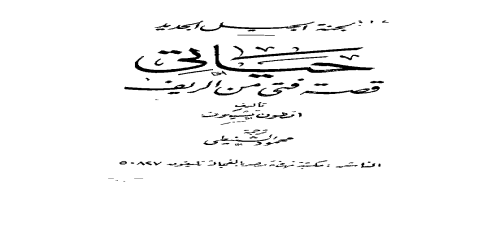 لجنة الجيل الجديد
حياتي
قصة فتى من الريف
تأليف
انطون تشيخوف
ترجمة
محمود الشنيطي
الناشر : مكتبة نهضة مصر بالفجالة تليفون ٥٠٨٢٧